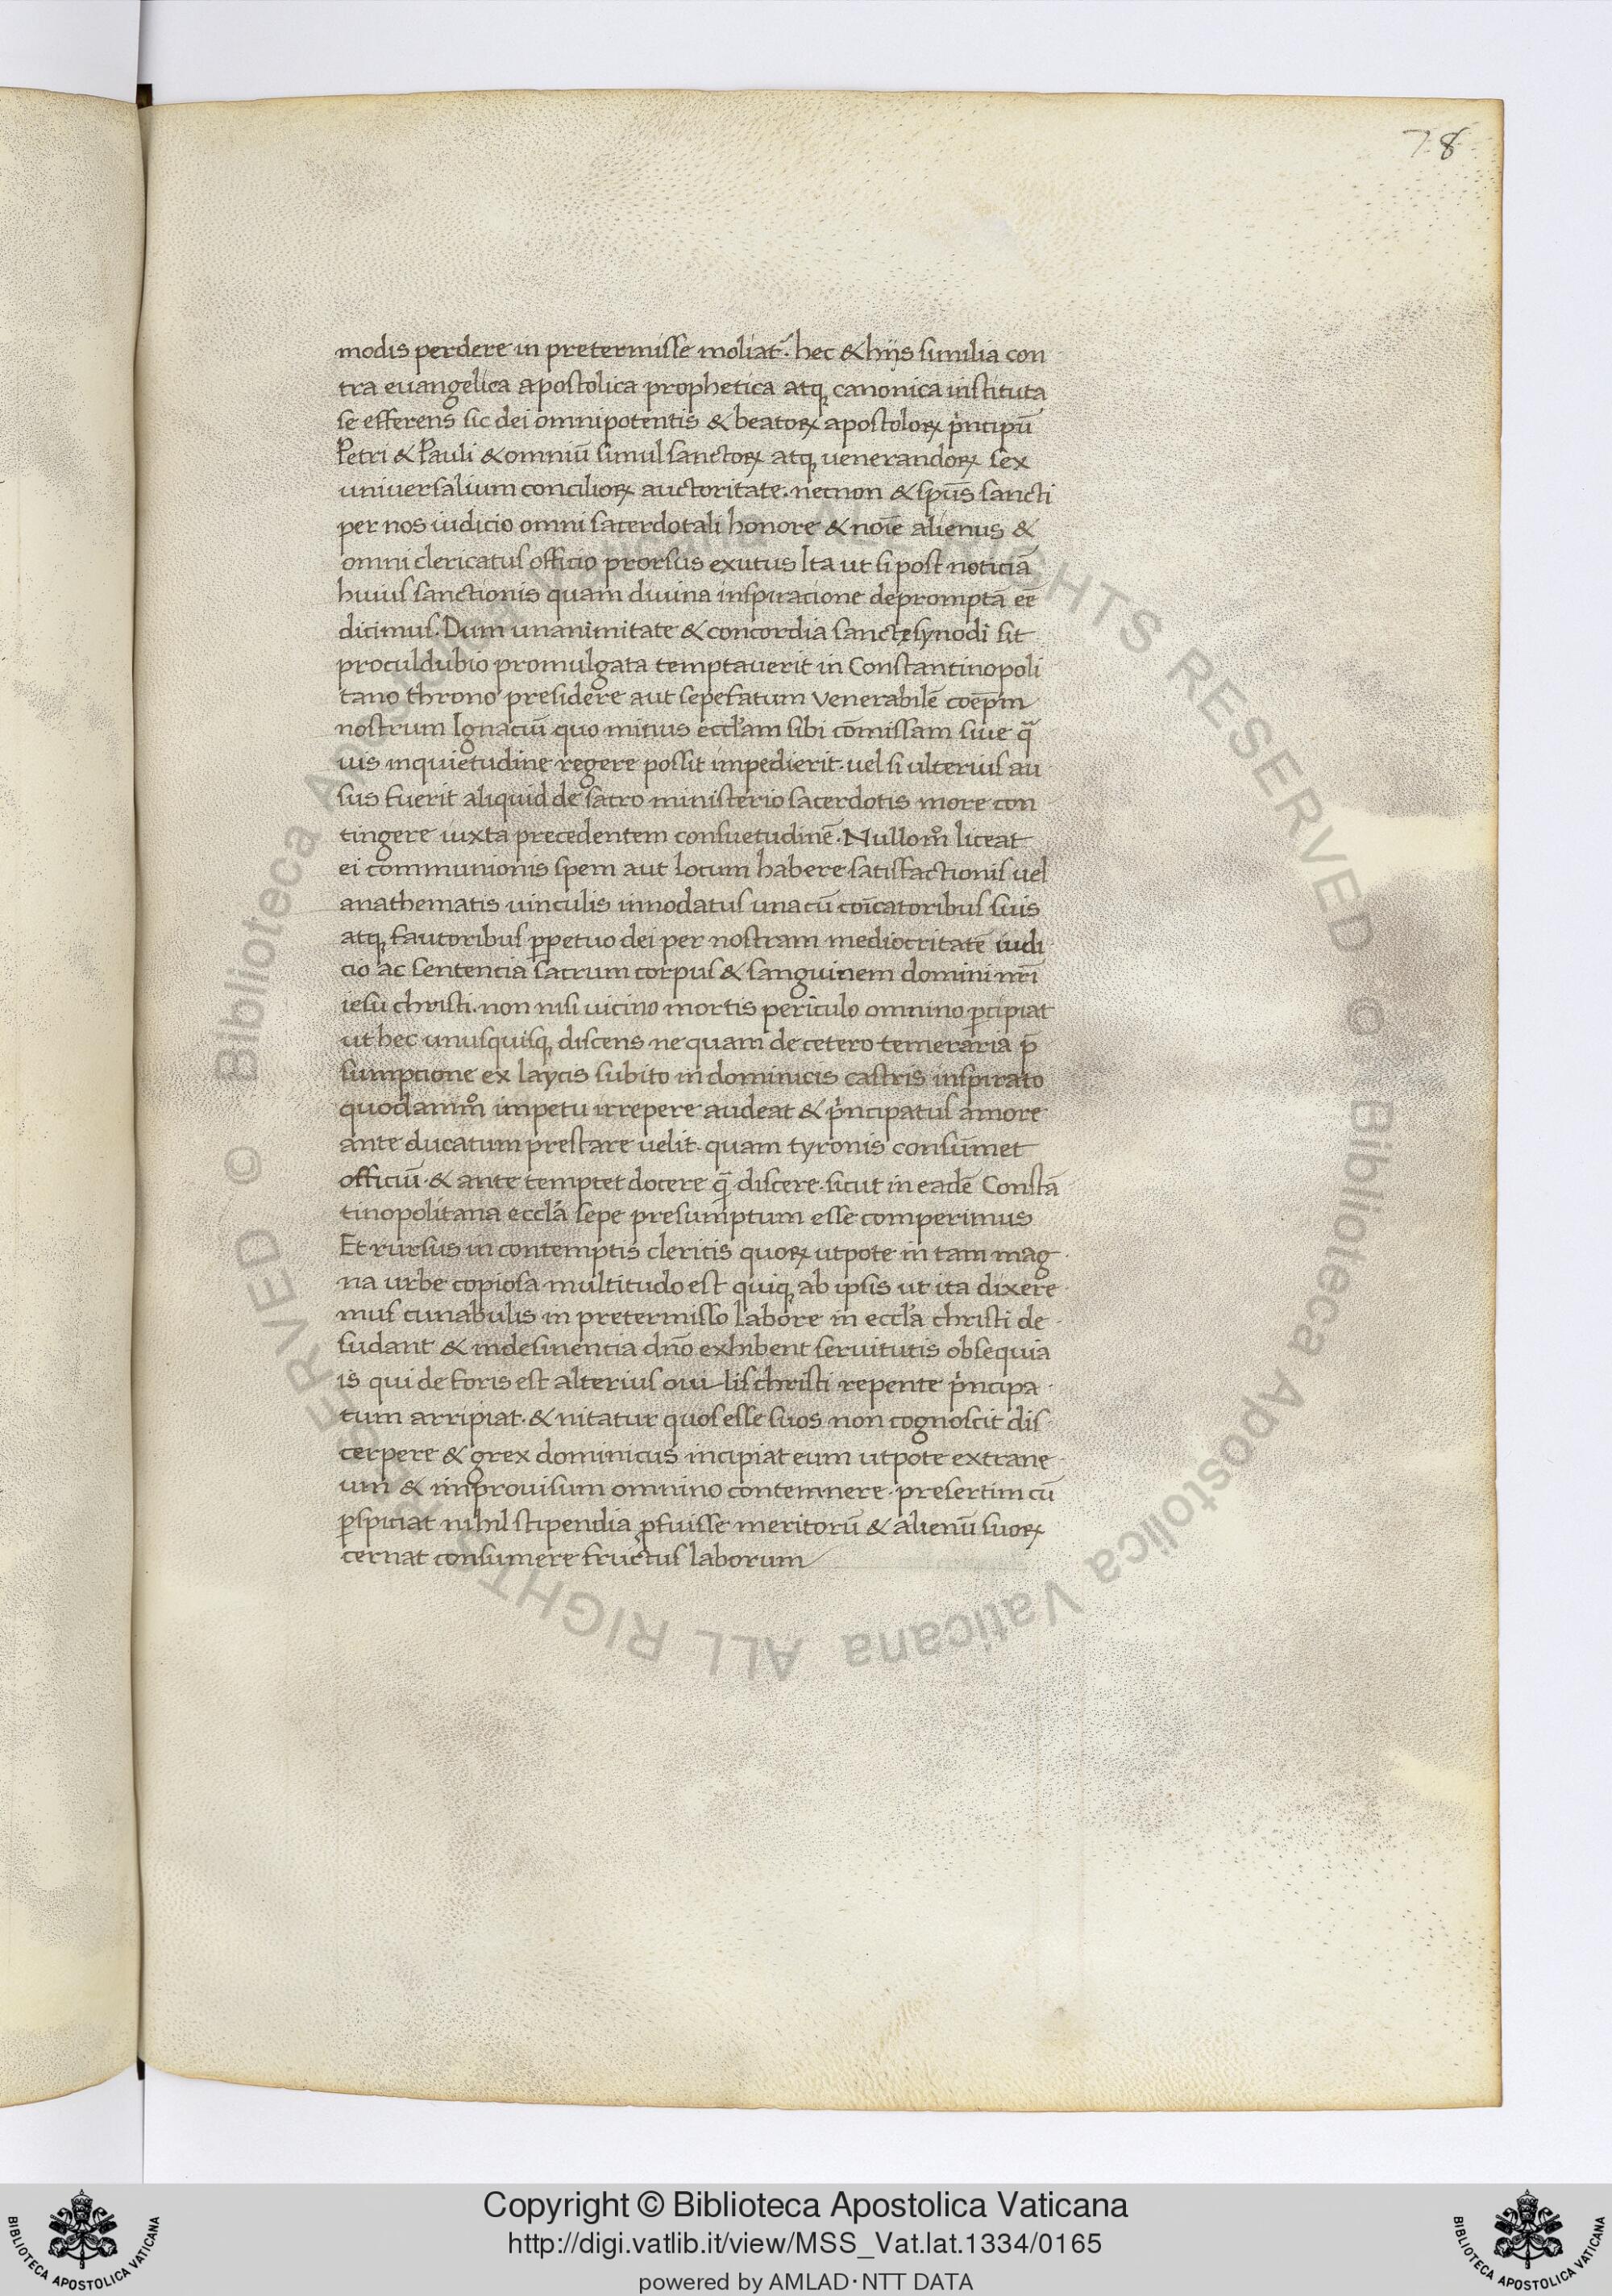 78
modis perdere in pretermisse moliat᷑. hec & hijs similia con
tra euangelica apostolica prophetica atq̨ canonica instituta
se efferens sic dei omnipotentis & beatoꝝ apostoloꝝ p̍ncipū
Petri & Pauli & omniū simul sanctoꝝ atq̨ uenerandoꝝ sex
universalium concilioꝝ auctoritate. necnon & sp̄us sancti
per nos iudicio omni sacerdotali honore & noīe alienus &
omni clericatus officio prorsus exutus Ita ut si post noticiā
huius sanctionis quam diuina inspiracione depromptā eē
dicimus. Dum unanimitate & concordia sanctę synodi sit
proculdubio promulgata temptaverit in Constantinopoli
tano throno presidere aut sepefatum venerabilē coēpm̄
nostrum Ignaciū quo minus eccl̓am sibi cōmissam siue q̄
uis inquietudine regere possit impedierit. uel si ulterius au
sus fuerit aliquid de sacro ministerio sacerdotis more con
tingere iuxta precedentem consuetudinē. Nullom̊ liceat
ei communionis spem aut locum habere satisfactionis uel
anathematis uinculis innodatus una cū coīcatoribus suis
atq̨ fautoribus ꝑpetuo dei per nostram mediocritatē iudi
cio ac sentencia sacrum corpus & sanguinem domini nr̄i
iesu christi. non nisi vicino mortis periculo omnino ꝑcipiat
ut hec unusquisq̨ discens ne quam de cetero temeraria p̄
sumpcione ex laycis subito in dominicis castris inspirato
quodamm̊ impetu irrepere audeat & p̍ncipatus amore
ante ducatum prestare uelit. quam tyronis consūmet
officiū. & ante temptet docere q̄ discere. sicut in eadē Constā
tinopolitana eccl̓a sepe presumptum esse comperimus
Et rursus in contemptis clericis quoꝝ utpote in tam mag
na urbe copiosa multitudo est quiq̨ ab ipsis ut ita dixere
mus cunabulis in pretermisso labore in eccl̓a christi de
sudant & indesinencia dn̄o exhibent servitutis obsequia
is qui de foris est alterius oui lis christi repente p̍ncipa
tum arripiat. & nitatur quos esse suos non cognoscit dis
cerpere & grex dominicus incipiat eum utpote extrane
um & improuisum omnino contemnere. presertim cū
ꝑspiciat nihil stipendia ꝓfuisse meritorū & alienū suoꝝ
cernat consumere fructus laborum
© Biblioteca Apostolica Vaticana ALL RIGHTS RESERVED © Biblioteca Apostolica Vaticana ALL RIGHTS RESERVED
Copyright © Biblioteca Apostolica Vaticana
http://digi.vatlib.it/view/MSS_Vat.lat.1334/0165
powered by AMLAD·NTT DATA
BIBLIOTECA APOSTOLICA VATICANA
BIBLIOTECA APOSTOLICA VATICANA